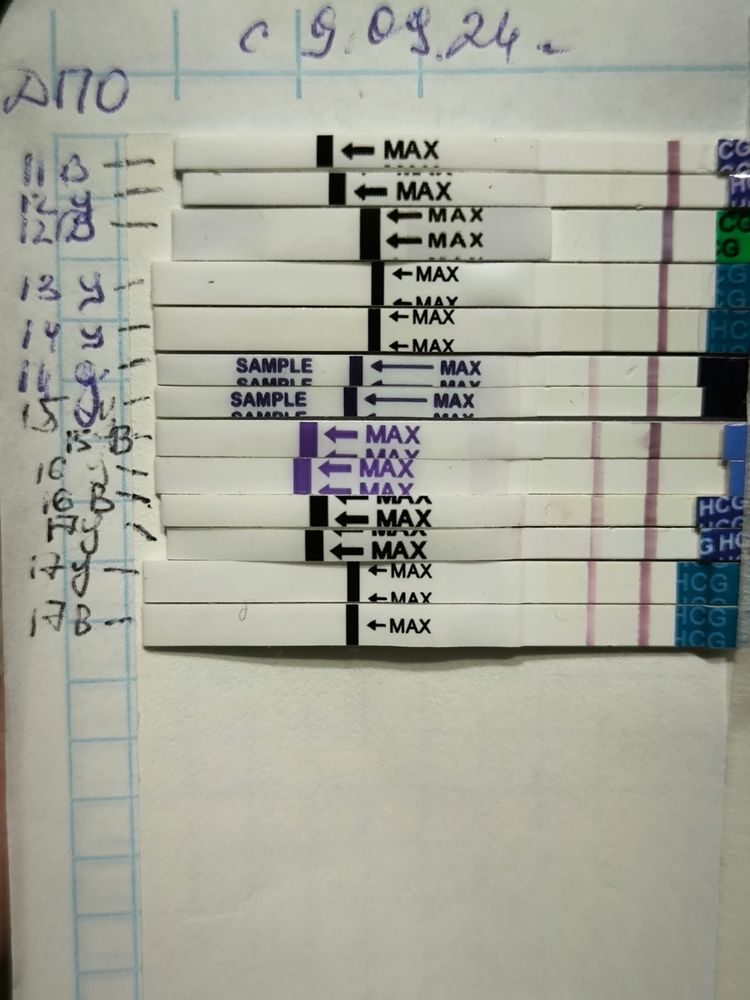 с 9.09.24.
ДПО
11 В MAX CG
12 У MAX H
12 В MAX CG
MAX CG
13 У MAX HCG
MAX
14 У MAX HCG
MAX
SAMPLE MAX
SAMPLE
15 SAMPLE MAX
SAMPLE
15 В MAX
MAX
16 MAX
MAX
16 В MAX HCG
MAX HCG
17 У MAX G HC
17 У MAX HCG
MAX HCG
17 В MAX HCG
HCG